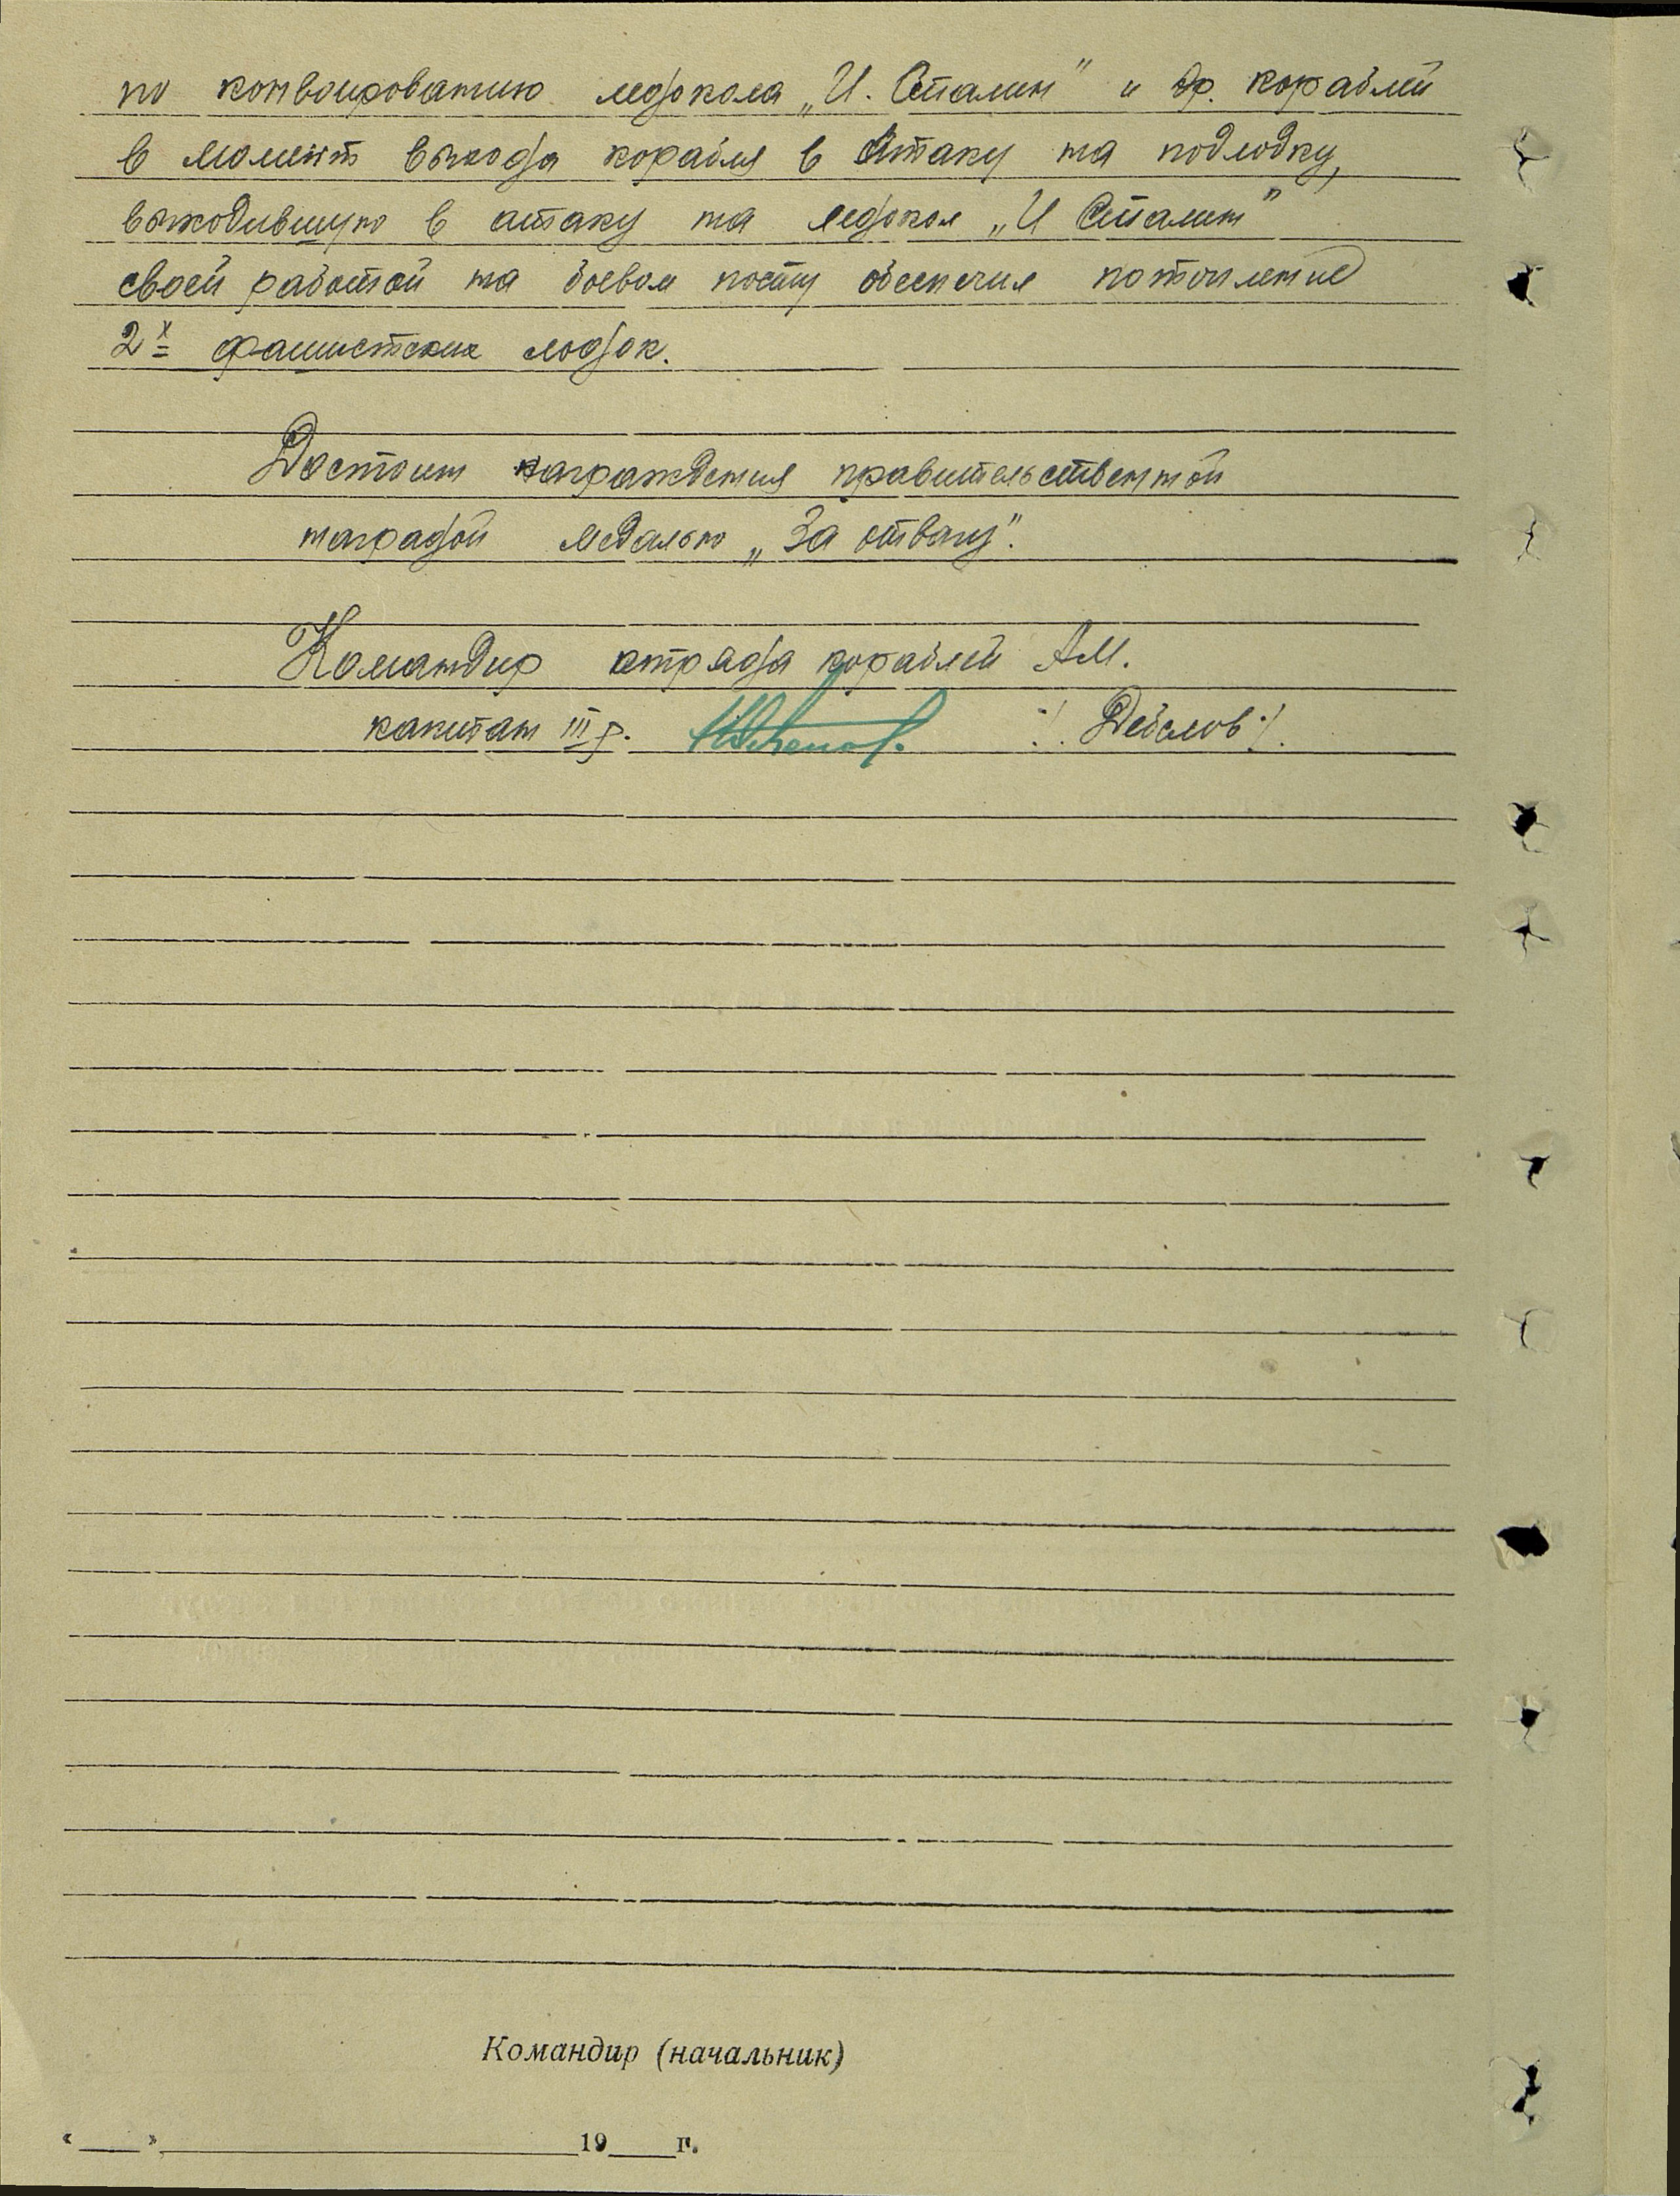 по конвоированию ледокола „И. Сталин" и др. кораблей
в момент выхода корабля в атаку на подлодку,
выходившую в атаку на ледокол „И Сталин"
своей работой на боевом посту обеспечил потопление
2х фашистских лодок.
Достоин награждения правительственной
наградой медалью „За отвагу".
Командир отряда кораблей АМ.
капитан III р. /Дебелов/.
Командир (начальник)
«____»____________19____г.